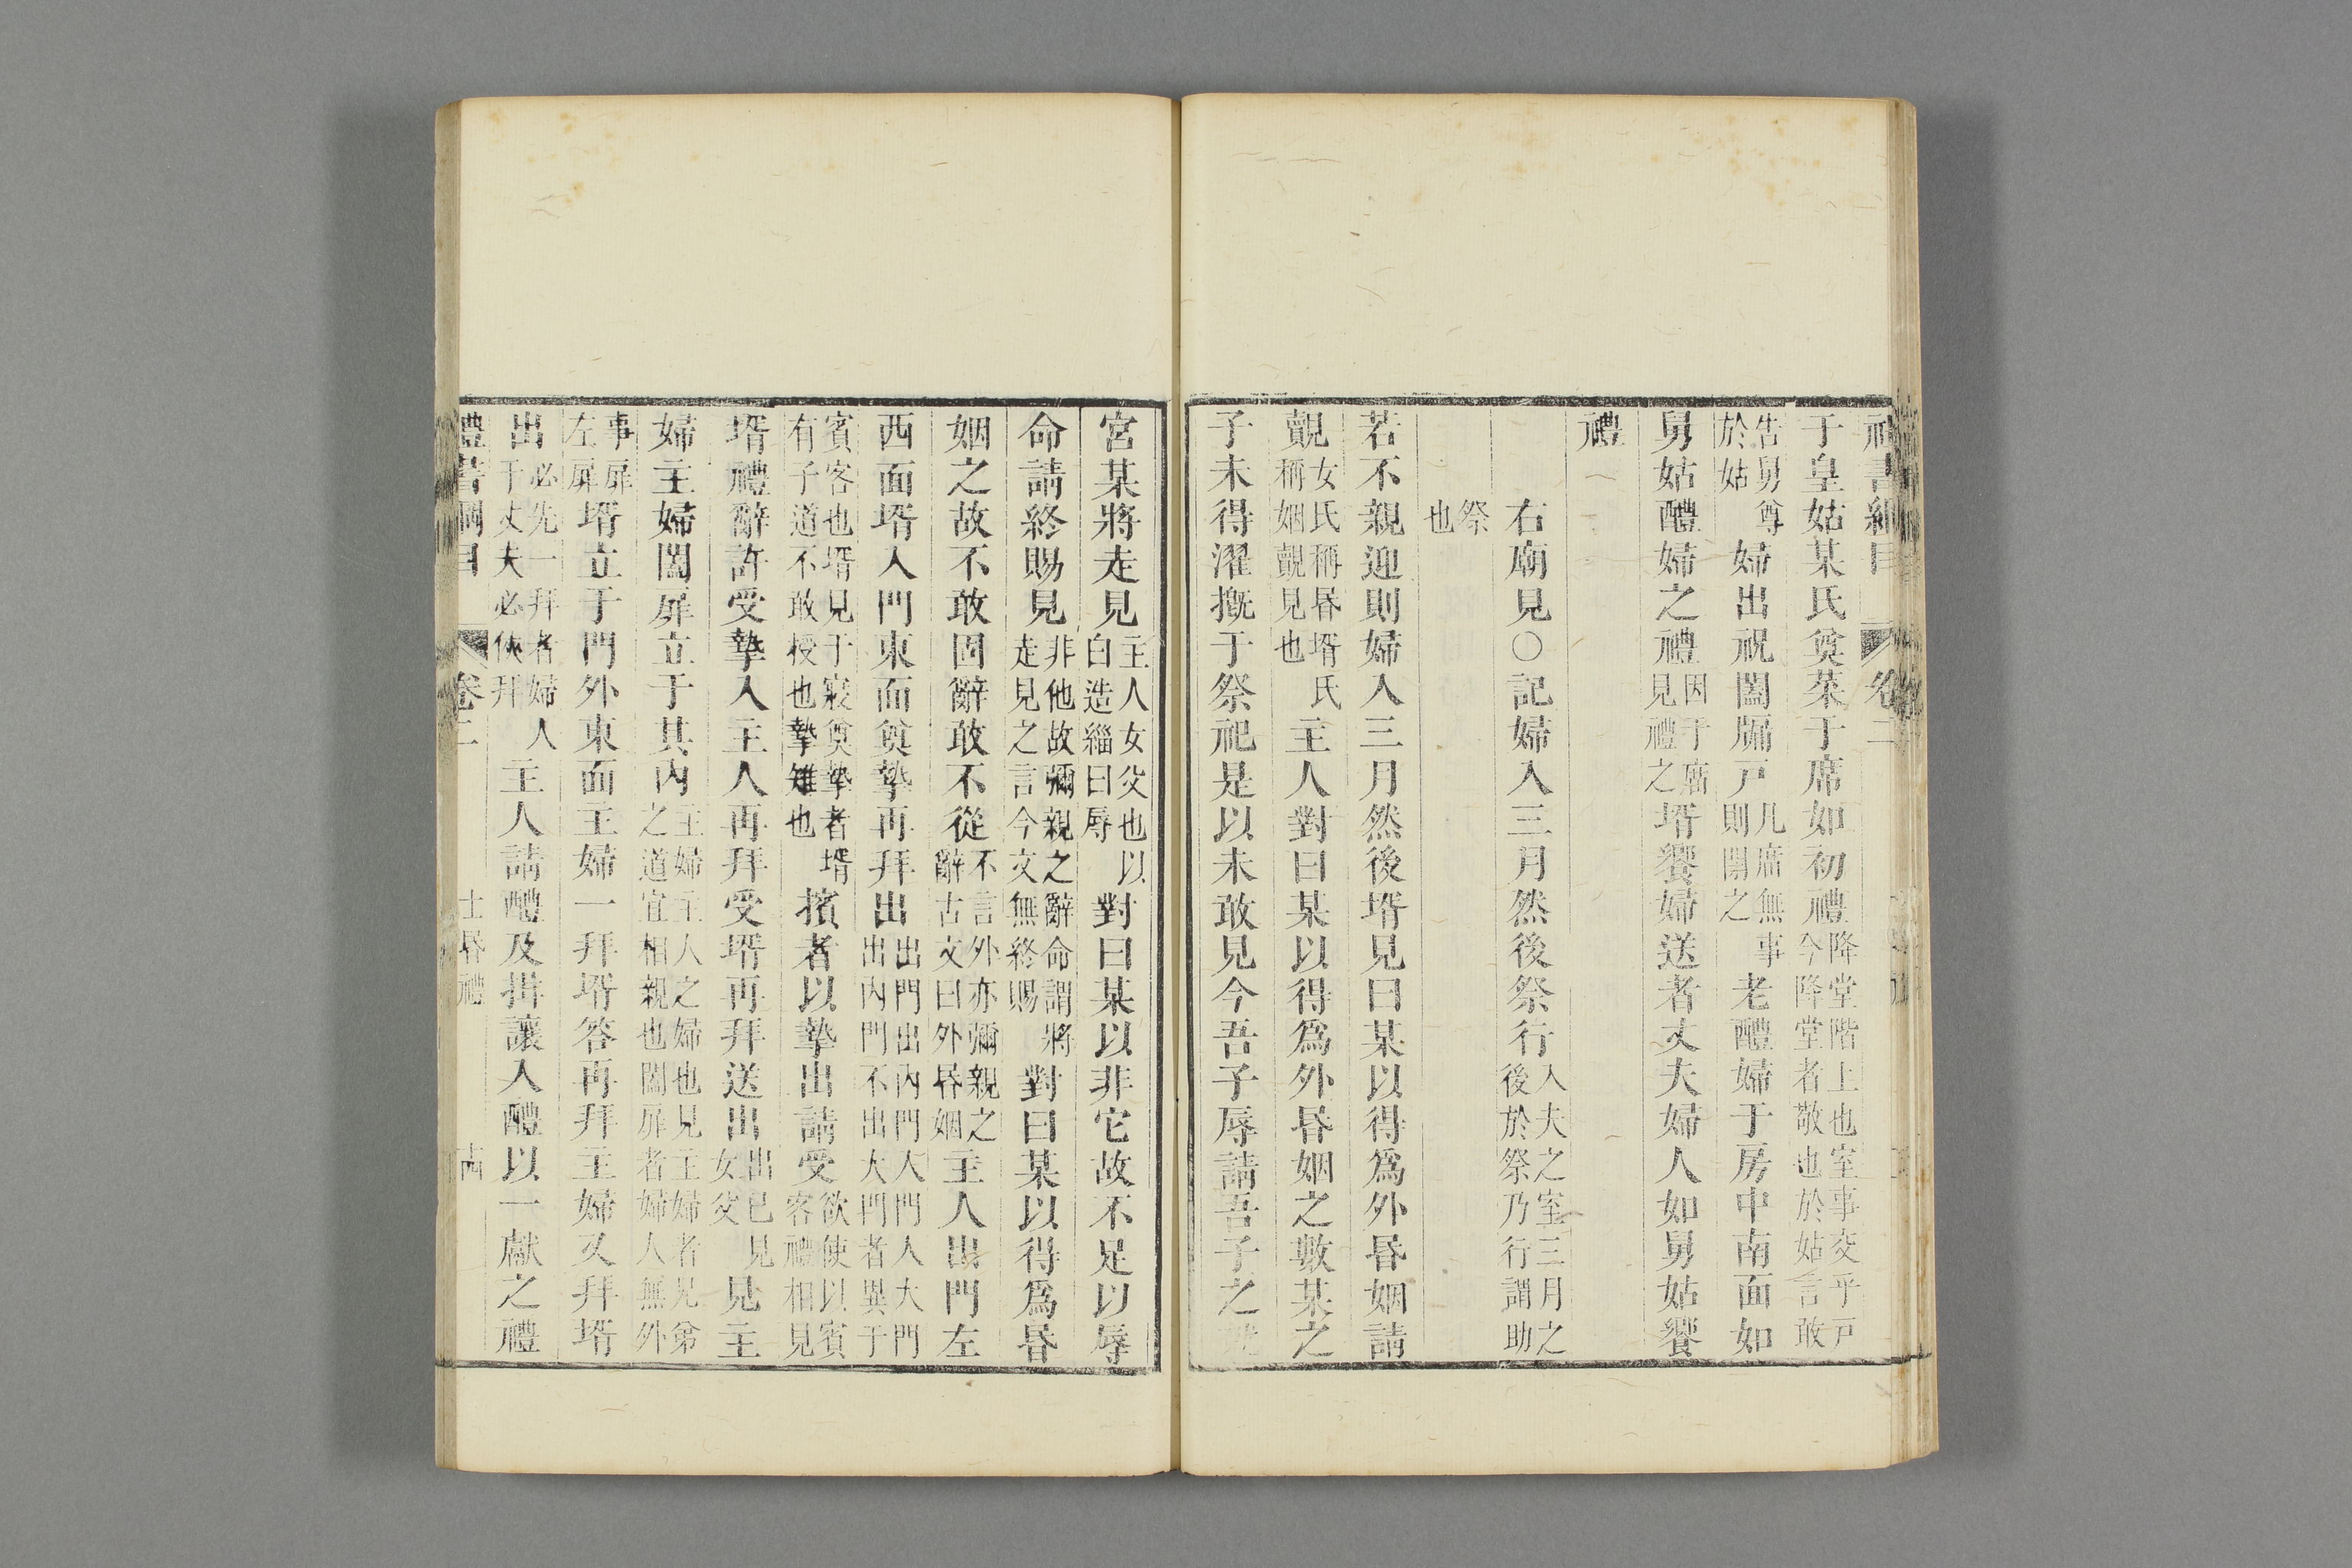 禮書綱目 卷二
于皇姑某氏奠菜于席如初禮降堂階上也室事交乎戸今降堂者敬也於姑言敢
告舅尊於姑婦出祝闔牖戸几席無事則閉之老醴婦于房中南面如
舅姑醴婦之禮因于廟見禮之壻饗婦送者丈夫婦人如舅姑饗
禮
右廟見○記婦入三月然後祭行入夫之室三月之後於祭乃行謂助
祭也
若不親迎則婦入三月然後壻見曰某以得爲外昏姻請
覿女氏稱昏壻氏稱姻覿見也主人對曰某以得爲外昏姻之數某之
子未得濯摡于祭祀是以未敢見今吾子辱請吾子之
宮某將走見主人女父也以白造緇曰辱對曰某以非它故不足以辱
命請終賜見非他故彌親之辭命謂將走見之言今文無終賜對曰某以得爲昏
姻之故不敢固辭敢不從不言外亦彌親之辭古文曰外昏姻主人出門左
西面壻入門東面奠摯再拜出出門出內門入門入大門出內門不出大門者異于
賓客也壻見于寢奠摯者壻有子道不敢授也摯雉也擯者以摯出請受欲使以賓客禮相見
壻禮辭許受摯入主人再拜受壻再拜送出出已見女父見主
婦主婦闔扉立于其內主婦主人之婦也見主婦者兄弟之道宜相親也闔扉者婦人無外
事扉左扉壻立于門外東面主婦一拜壻答再拜主婦又拜壻
出必先一拜者婦人于丈夫必俠拜主人請醴及揖讓入醴以一獻之禮
禮書綱目 卷二 士昏禮 十四